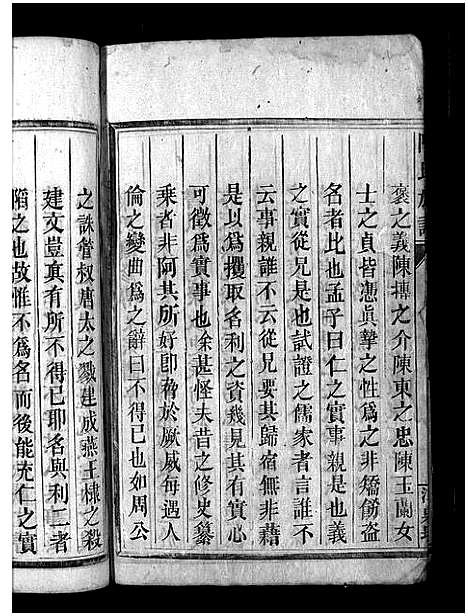 褒之義陳摶之介陳東之忠陳玉蘭女
士之貞皆憑真摯之性爲之非矯飾盜
名者比也孟子曰仁之實事親是也義
之實從兄是也試證之儒家者言誰不
云事親誰不云從兄夷其歸宿無非藉
是以爲攫取名利之資幾見其有實心
可徵爲實事也余甚怪夫昔之修史纂
乘者非阿其所好即脅於厥威每遇人
倫之變曲爲之辭曰不得已也如周公
之誅管叔唐太之戮建成燕王棣之殺
建文豈真有所不得已耶名與利二者
陷之也故惟不爲名而後能充仁之實